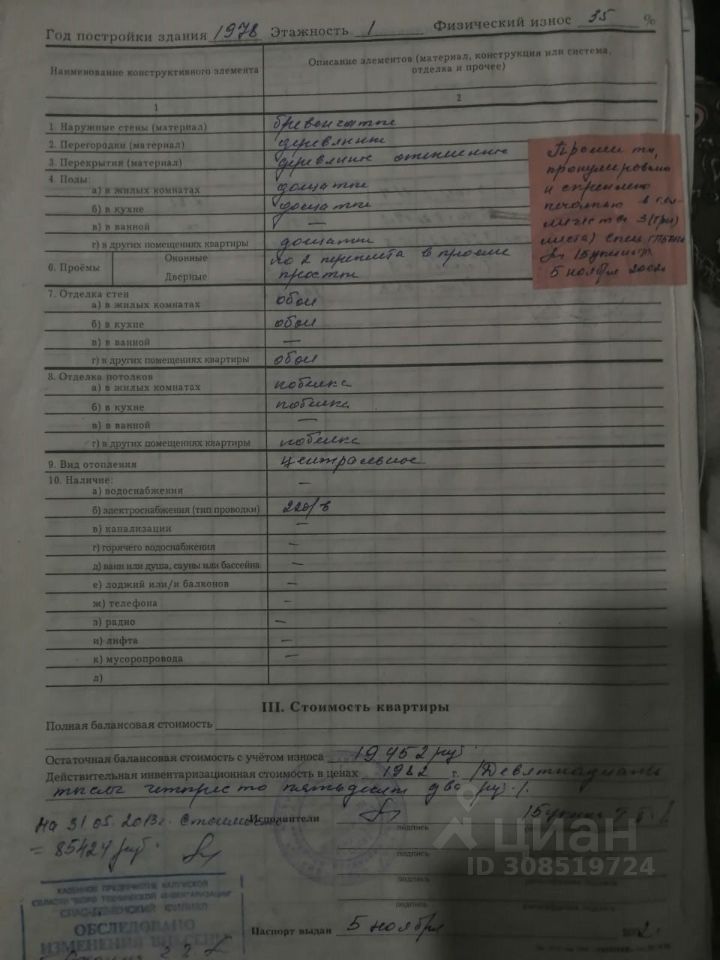 Год постройки здания 1978 Этажность 1 Физический износ 35 %
Наименование конструктивного элемента
Описание элементов (материал, конструкция или система, отделка и прочее)
1 2
1. Наружные стены (материал) бревенчатые
2. Перегородки (материал) деревянные
3. Перекрытия (материал) деревянные отепленные
4. Полы:
а) в жилых комнатах дощатые
б) в кухне дощатые
в) в ванной —
г) в других помещениях квартиры дощатые
6. Проёмы Оконные по 2 переплета в проеме
Дверные простые
7. Отделка стен
а) в жилых комнатах обои
б) в кухне обои
в) в ванной —
г) в других помещениях квартиры обои
8. Отделка потолков
а) в жилых комнатах побелка
б) в кухне побелка
в) в ванной —
г) в других помещениях квартиры побелка
9. Вид отопления центральное
10. Наличие:
а) водоснабжения —
б) электроснабжения (тип проводки) 220/в
в) канализации —
г) горячего водоснабжения —
д) ванн или душа, сауны или бассейна —
е) лоджий или/и балконов —
ж) телефона —
з) радио —
и) лифта —
к) мусоропровода —
л)
Прошито,
пронумеровано
и скреплено
печатью в ко-
личестве 3 (три)
листа)
5 ноября 2002г
III. Стоимость квартиры
Полная балансовая стоимость
Остаточная балансовая стоимость с учётом износа 19452 руб.
Действительная инвентаризационная стоимость в ценах 1982 г. (Девятнадцать
тысяч четыреста пятьдесят два руб.)
Исполнители
подпись
На 31.05.2013г. стоимость
= 85424 руб.
подпись
подпись
подпись
КАЗЕННОЕ ПРЕДПРИЯТИЕ КАЛУЖСКОЙ
ОБЛАСТИ "БЮРО ТЕХНИЧЕСКОЙ ИНВЕНТАРИЗАЦИИ"
СПАС-ДЕМЕНСКИЙ ФИЛИАЛ
ОБСЛЕДОВАНО
ИЗМЕНЕНИЯ ВНЕСЕНЫ
Паспорт выдан 5 ноября
циан
ID 308519724